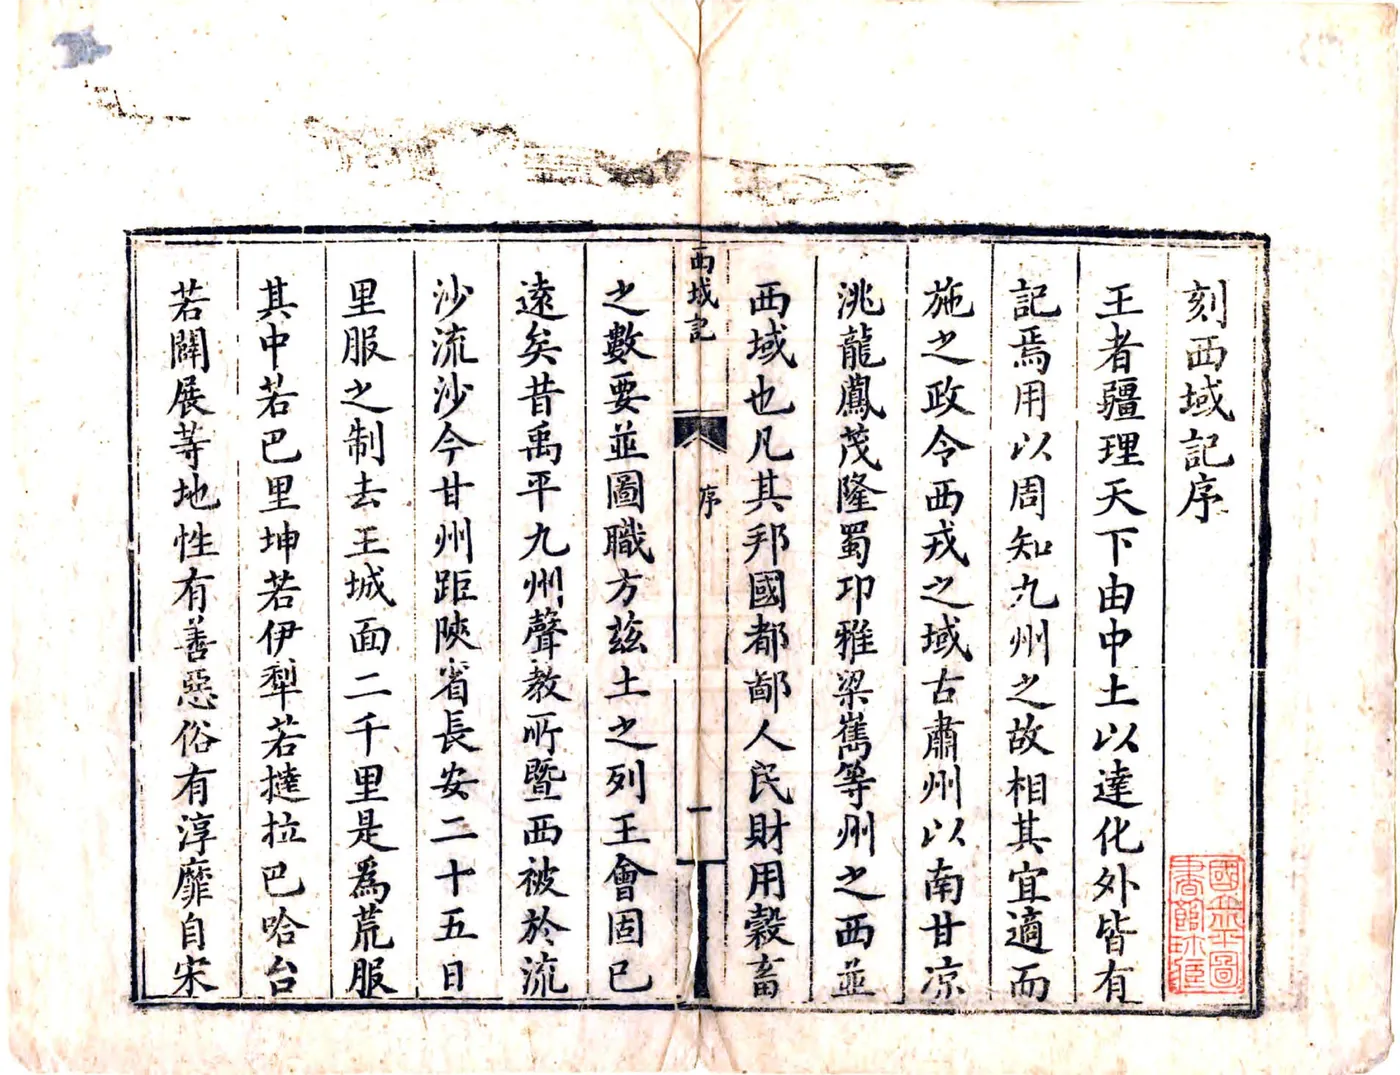 刻西域記序
王者疆理天下由中土以達化外皆有
記焉用以周知九州之故相其宜適而
施之政令西戎之域古肅州以南甘凉
洮龍鳳茂隆蜀卬雅梁巂等州之西並
西域也凡其邦國都鄙人民財用穀畜
西域記
序
一
之數要並圖職方茲土之列王會固已
遠矣昔禹平九州聲教所暨西被於流
沙流沙今甘州距陝省長安二十五日
里服之制去王城面二千里是爲荒服
其中若巴里坤若伊犁若撻拉巴哈台
若闢展等地性有善惡俗有淳靡自宋